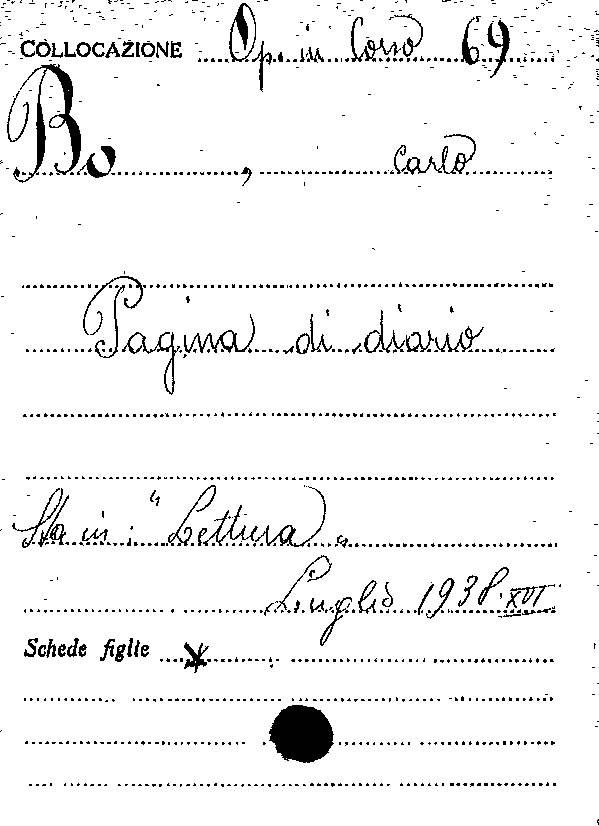 COLLOCAZIONE Op. in Corso 69
Bo, Carlo
Pagina di diario
Sta in: "Lettura"
Luglio 1938·XVI
Schede figlie